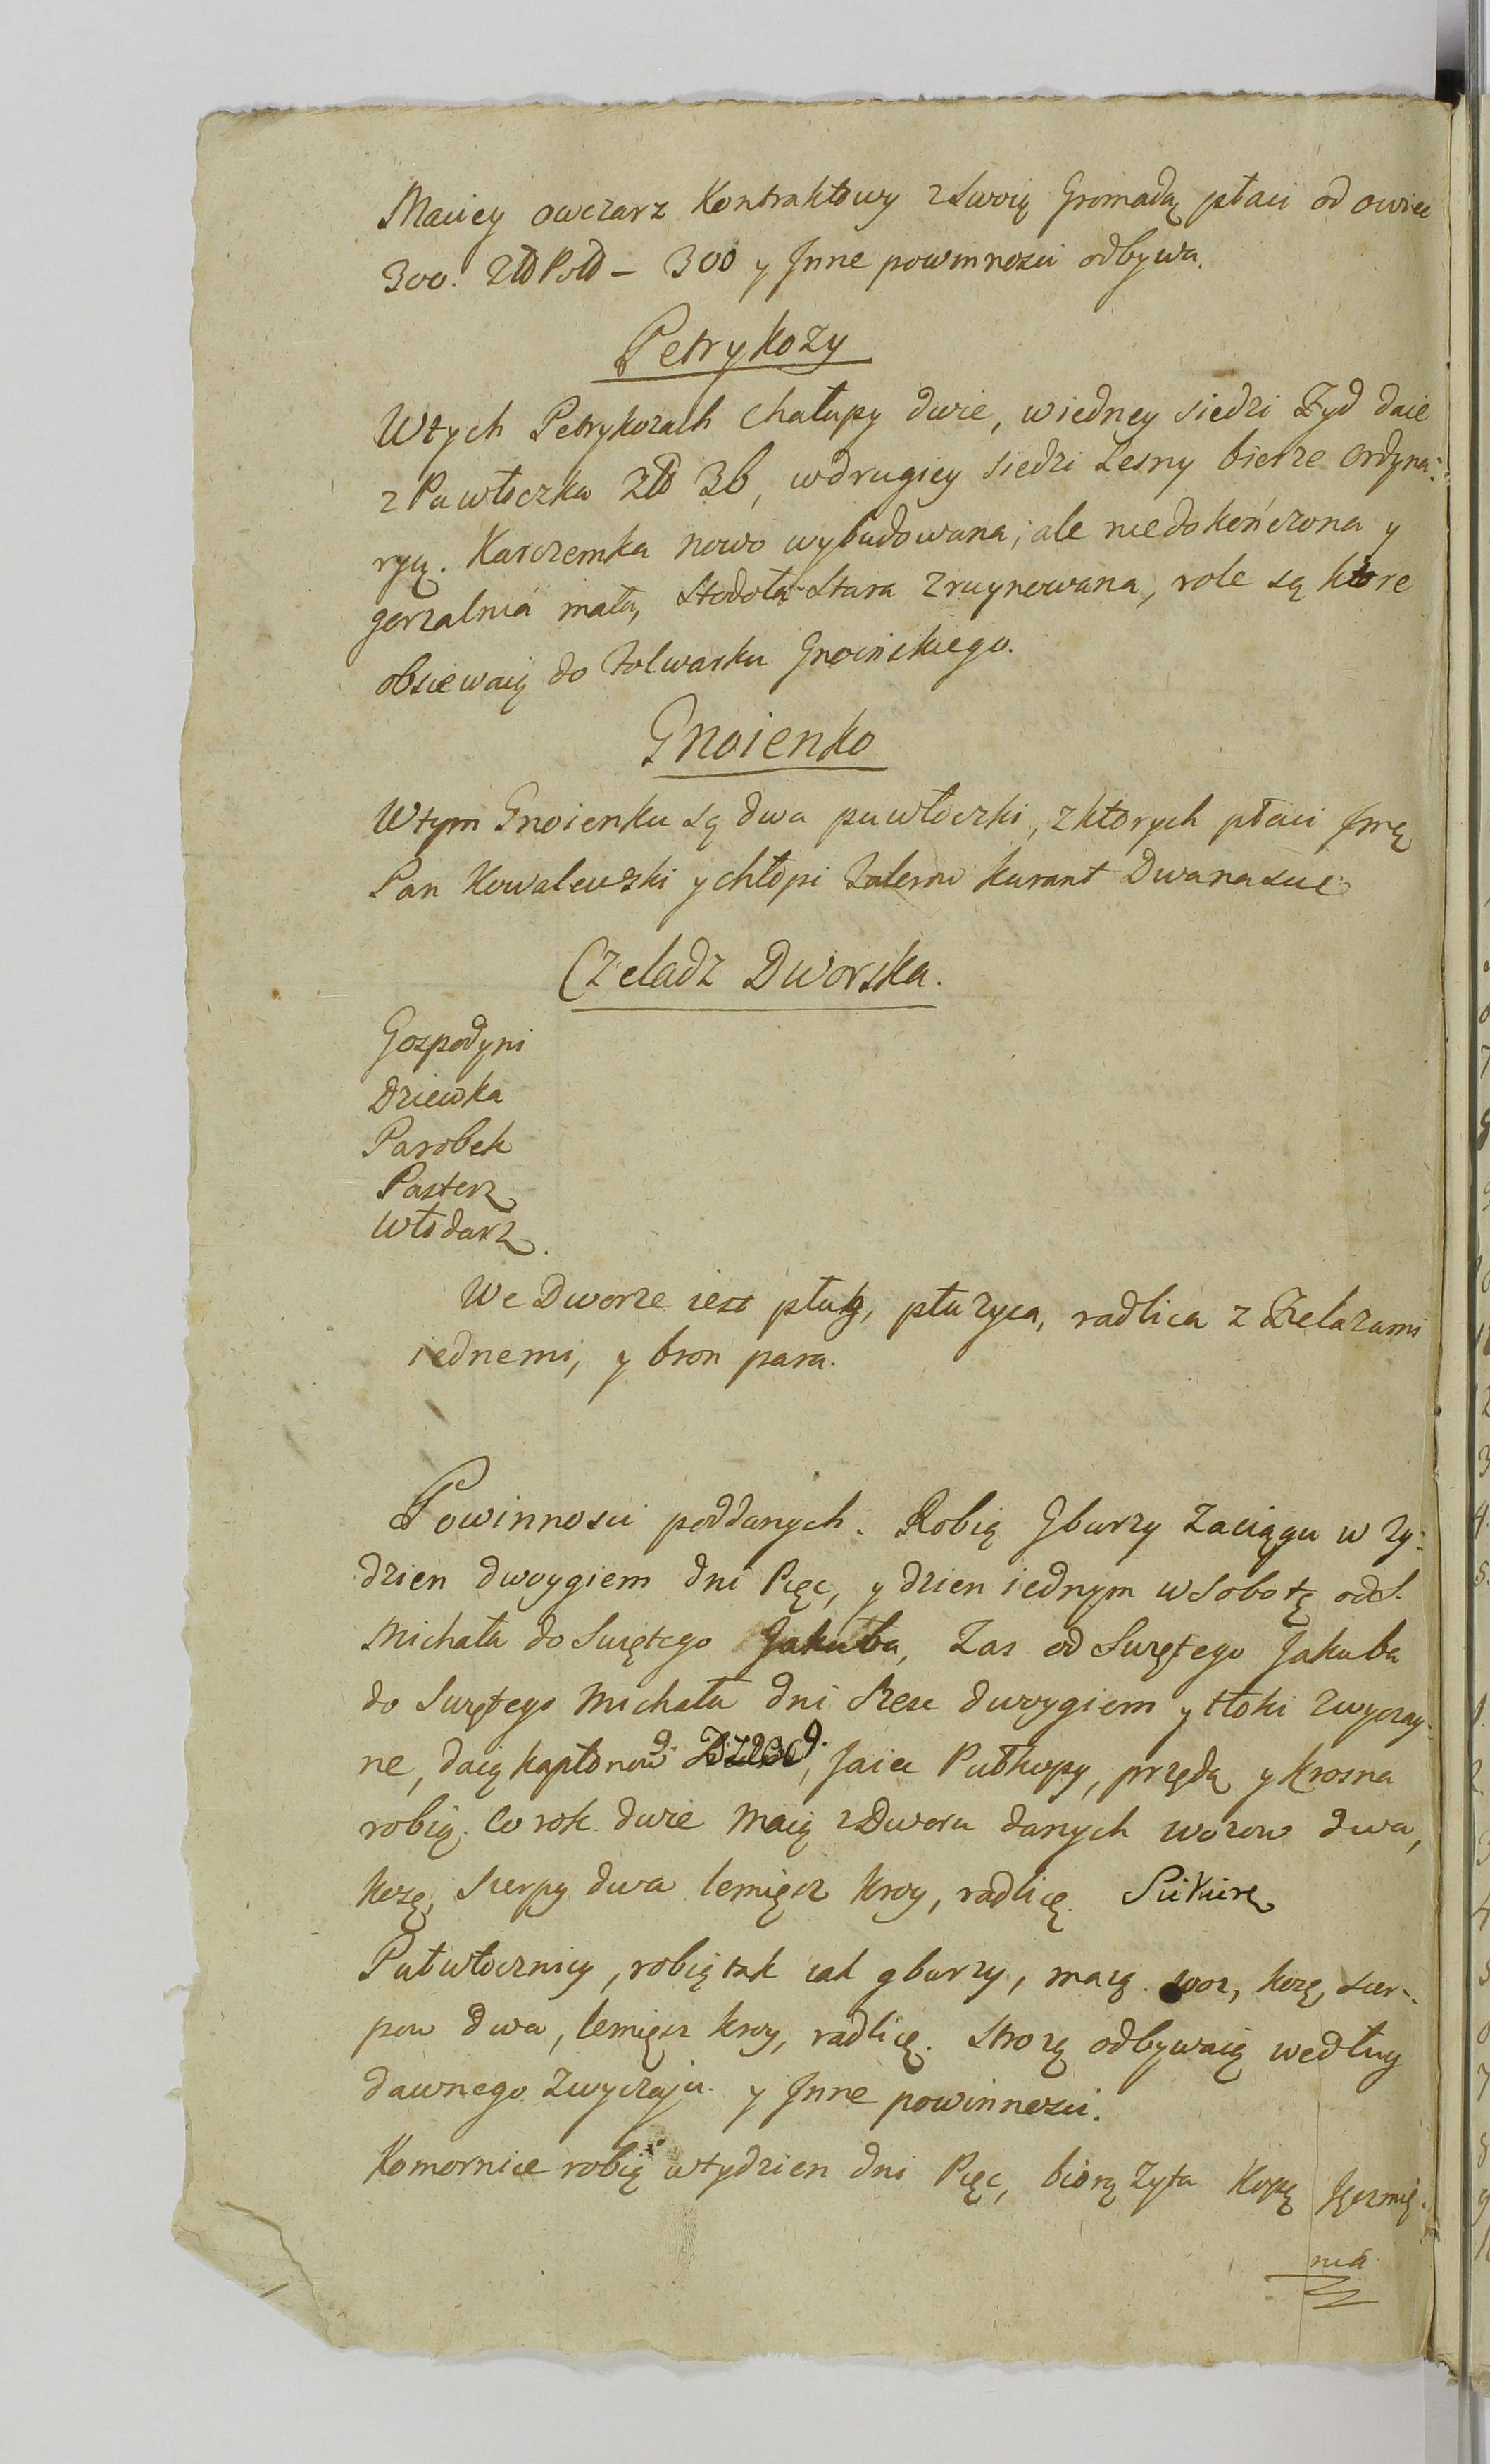 Maciey owczarz Kontraktowy z Swoią Gromadą płaci od owiec
300. Złł Poll – 300 y Jnne powinnosci odbywa.
Petrykozy
W tych Petrykozach Chałupy dwie, w iedney siedzi Zyd daie
z Pu włoczka Złł 36, w drugiey siedzi Lesny bierze Ordyna:
ryą. Karczemka nowo wybudowana, ale niedokończona y
gorzalnia mała, Stodoła Stara zruynowana, role są ktore
obsiewaią do Folwarku Gnoińskiego.
Gnoienko
W tym Gnoienku są dwa puwłoczki, z ktorych płaci Jmć
Pan Kowalewski y chłopi Talerow kurant Dwanascie
Czeladz Dworska.
Gospodyni
Dziewka
Parobek
Pasterz
Włodarz.
We Dworze iest pług, płużyca, radlica z Zelazami
iednemi, y bron para.
Powinnosci poddanych. Robią Gburzy Zaciągu w ty:
dzien dwoygiem dni Pięc, y dzien iednym w Sobotę od S.
Michała do Swiętego Jakuba, Zas od Swiętego Jakuba
do Swiętego Michała dni Szesc dwoygiem y tłoki zwyczay:
ne, daią kapłonow, Jaiec Pułkopy, przędą y Krosna
robią. Co rok dwie Maią z Dworu danych wozow dwa,
kosę, Sierpy dwa lemięsz kroy, radlicę. Siekierę
Pułwłocznicy, robią tak iak gburzy, maią woz, kosę, sier:
pow dwa, lemięsz kroy, radlicę. Strożą odbywaią według
dawnego zwyczaju y Jnne powinnosci.
Komornice robią w tydzien dni Pięc, biorą Zyta Kopę Jęczmię:
nia